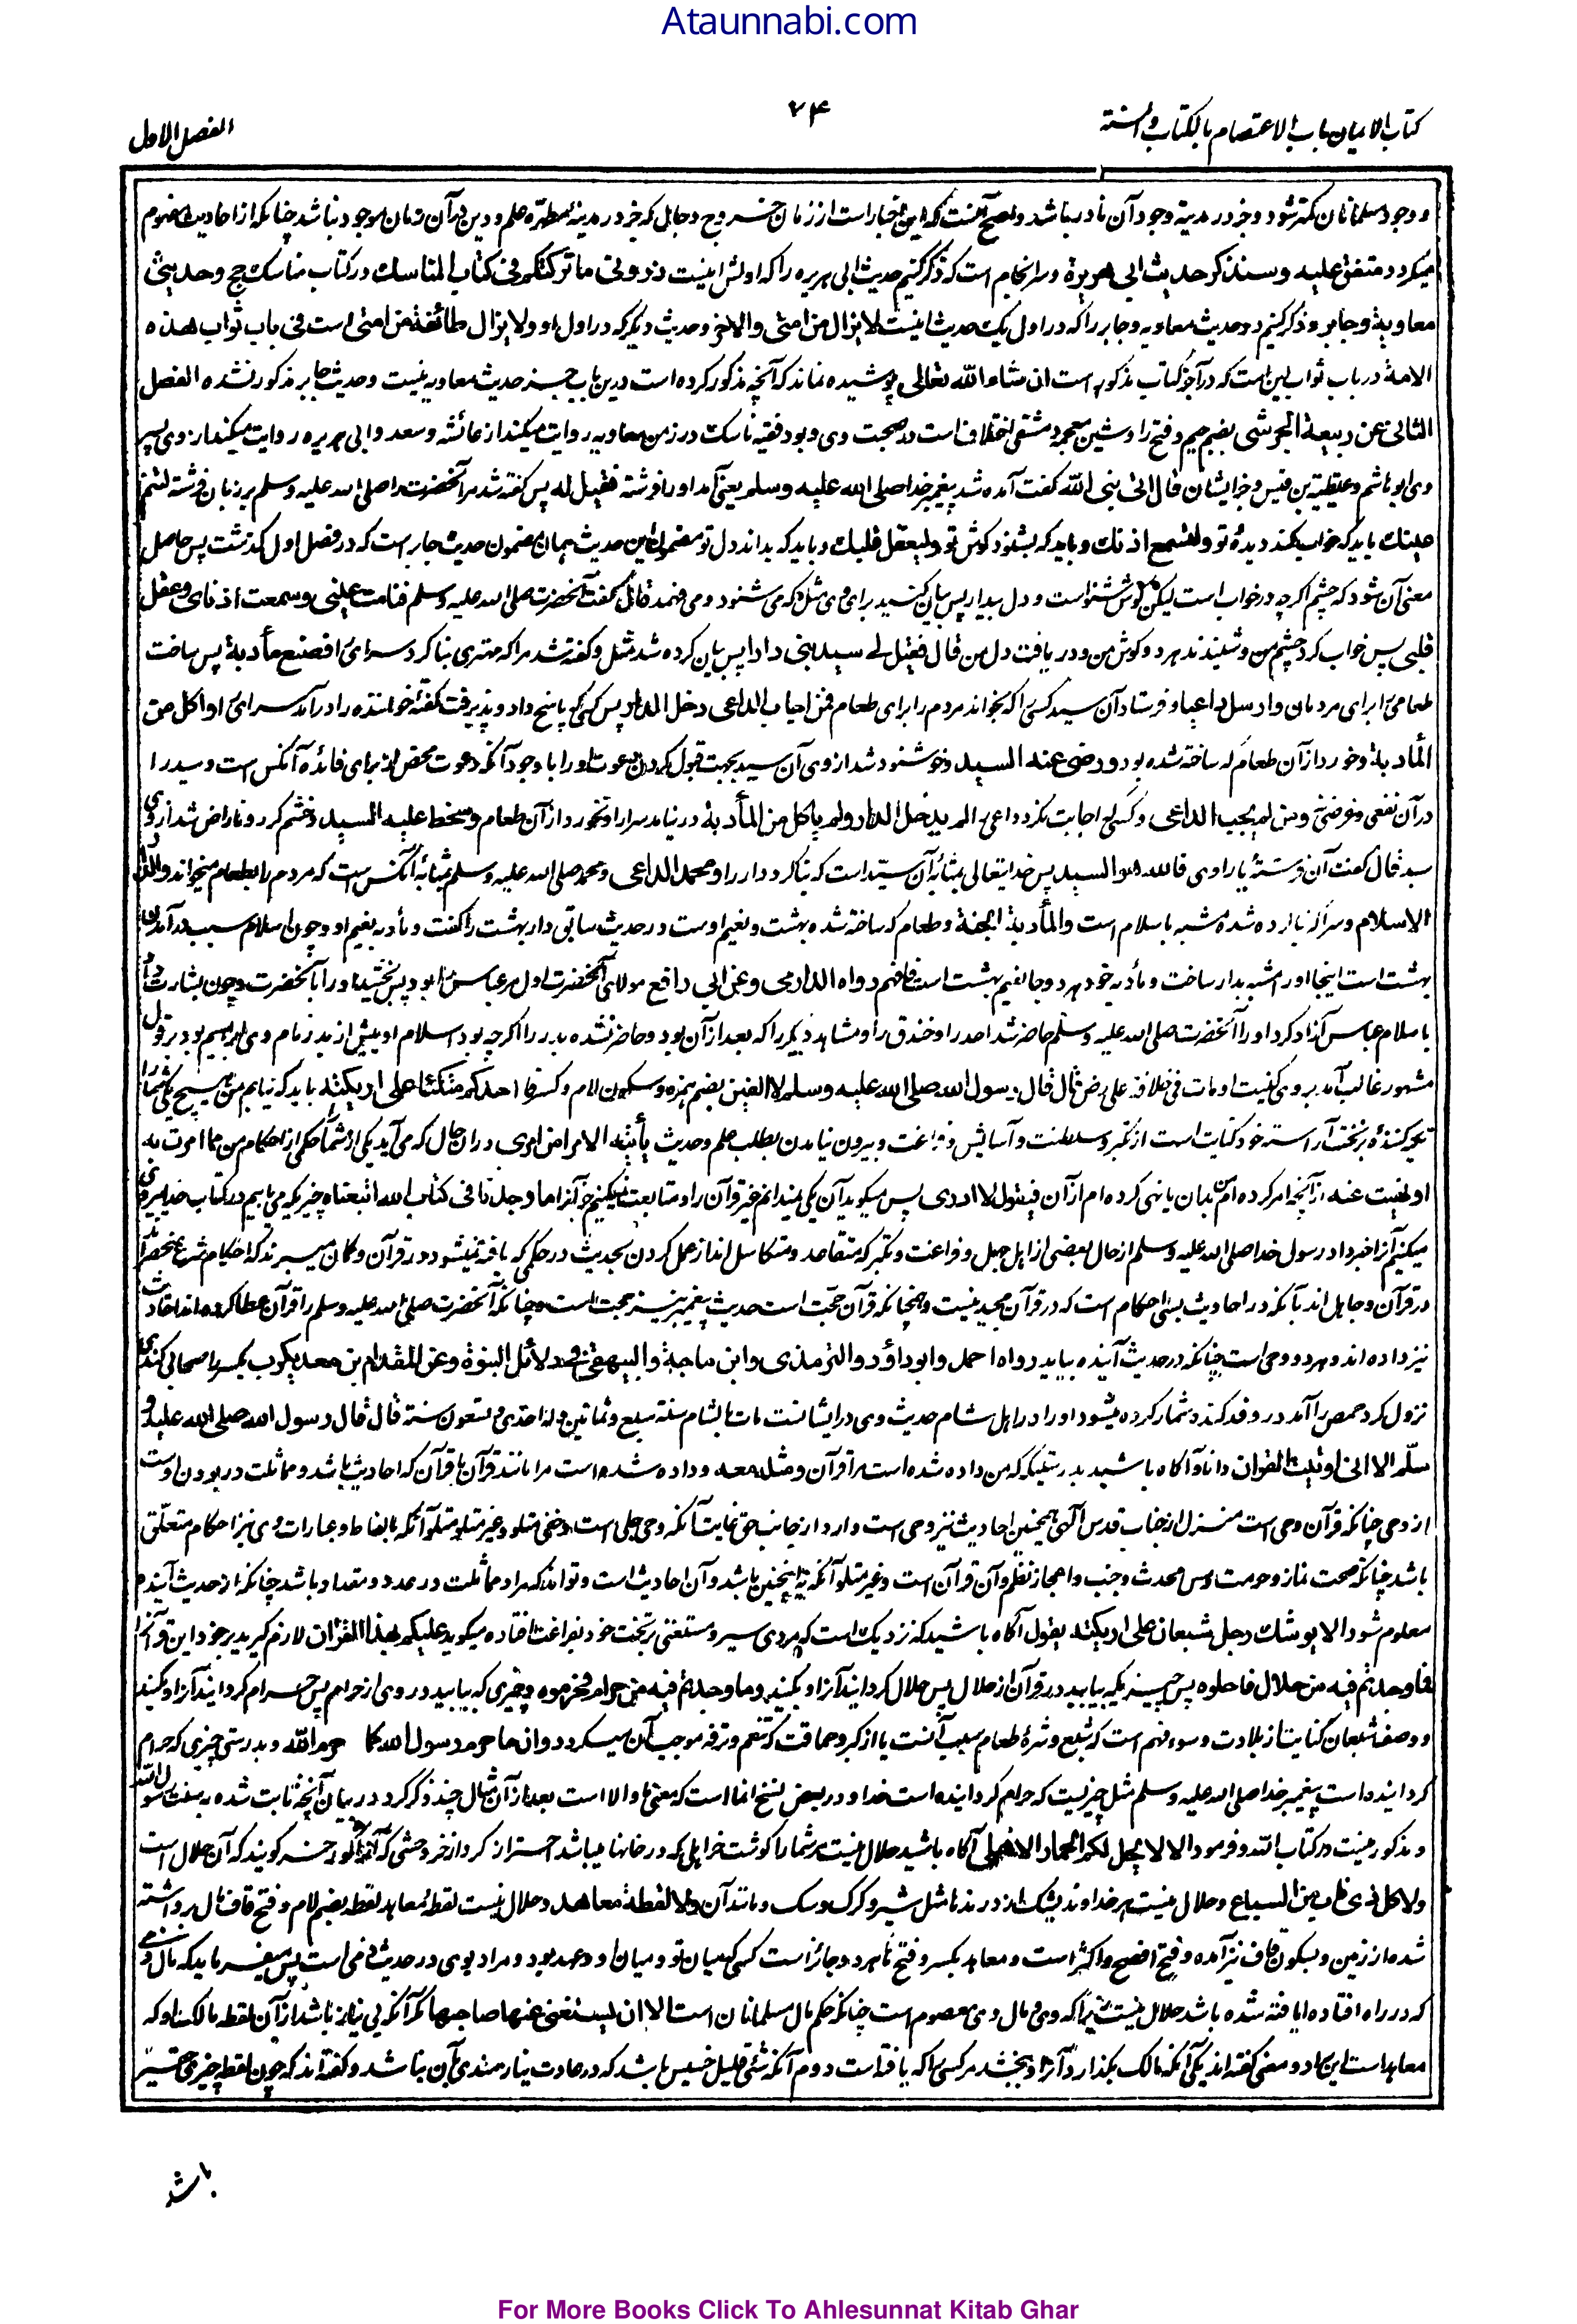 Ataunnabi.com
کتاب الایمان باب الاعتصام بالکتاب والسنة
۷۴
الفصل الاول
و وجود مسلمانان کمتر شود و جز در مدینه وجود آن نادر باشد و صحیح آنست که این اخبار است از زمان خروج دجال که جز در مدینهٔ مطهره علم و دین در آن زمان موجود نباشد چنانکه از احادیث مفهوم
میگردد متفق علیه وسنذکر حدیث ابی هریرة و سرانجام است که ذکر کنیم حدیث ابی هریره را که اولش اینست ذرونی ما ترکتکم فی کتاب المناسک در کتاب مناسک حج وحدیثی
معاویة وجابر و ذکر کنیم دو حدیث معاویه و جابر را که در اول یک حدیث اینست لا یزال من امتی والاخر و حدیث دیگر که در اول او ولا یزال طائفة من امتی است فی باب ثواب هذه
الامة در باب ثواب این امت که در آخر کتاب مذکور است ان شاء الله تعالی پوشیده نماند که آنچه مذکور کرده است درین باب جز حدیث معاویه نیست و حدیث جابر مذکور نشده الفصل
الثانی عن ربیعة الجرشی بضم جیم و فتح را و شین معجمه دمشقی اختلاف است در صحبت وی و بود فقیه ناسک در زمن معاویه روایت میکند از عائشه و سعد و ابی هریره روایت میکند از وی پسر
وی ابو هاشم و عطیة بن قیس و جز ایشان قال اتی نبی الله گفت آمده شد پیغمبر خدا صلی الله علیه وسلم یعنی آمد او را فرشته فقیل له پس گفته شد مر آنحضرت را صلی الله علیه وسلم بر زبان فرشته لتنم
عینک باید که خواب کند دیدهٔ تو ولتسمع اذنک و باید که بشنود گوش تو ولیعقل قلبک و باید که بداند دل تو مضمون این حدیث همان مضمون حدیث جابر است که در فصل اول گذشت پس حاصل
معنی آن شود که چشم اگرچه در خواب است لیکن گوش شنواست و دل بیدار پس بیان کنید برای وی مثل که می شنود و می فهمد قال گفت آنحضرت صلی الله علیه وسلم فنامت عینی وسمعت اذنای وعقل
قلبی پس خواب کرد چشم من و شنیدند هر دو گوش من و دریافت دل من قال فقیل لی سید بنی دارا پس بیان کرده شد مثل و گفته شد مرا که مهتری بنا کرد سرای را فصنع مأدبة پس ساخت
طعامی را برای مردمان وارسل داعیا و فرستاد آن سید کسی را که بخواند مردم را برای طعام فمن اجاب الداعی دخل الدار پس کسی که پاسخ داد و پذیرفت گفتهٔ خواننده را درآمد سرای را واکل من
المأدبة و خورد از آن طعام که ساخته شده بود ورضی عنه السید و خوشنود شد از وی آن سید بجهت قبول کردن دعوت او را با وجود آنکه دعوت محض از برای فائدهٔ آنکس است و سید را
در آن نفعی و غرضی نی ومن لم یجب الداعی و کسی که اجابت نکرد داعی را لم یدخل الدار ولم یاکل من المأدبة در نیامد سرا را و نخورد از آن طعام وسخط علیه السید و خشم کرد و ناراض شد از وی
سید قال گفت آن فرشته یا راوی فالله هو السید پس خدایتعالی بمثابهٔ آن سید است که بنا کرد دار را ومحمد الداعی و محمد صلی الله علیه وسلم بمثابهٔ آنکس است که مردم را بطعام میخواند والدار
الاسلام و سرا که بنا کرده شده مشبه باسلام است والمأدبة الجنة و طعام که ساخته شده بهشت و نعیم اوست و در حدیث سابق دار بهشت را گفت و مأدبه نعیم او و چون اسلام سبب درآمدن
بهشت است اینجا او را مشبه بدار ساخت و مأدبه خود هر دو جا نعیم بهشت است فافهم رواه الدارمی وعن ابی رافع مولای آنحضرت اول مر عباس را بود پس بخشید او را بآنحضرت و چون بشارت داد
باسلام عباس آزاد کرد او را آنحضرت صلی الله علیه وسلم حاضر شد احد را و خندق را و مشاهد دیگر را که بعد از آن بود و حاضر نشده بدر را اگرچه بود اسلام او پیش از بدر نام وی ابراهیم بود بر قول
مشهور غالب آمد بر وی کنیت او مات فی خلافة علی رض قال قال رسول الله صلی الله علیه وسلم لا الفین بضم همزه و سکون لام و کسر فا احدکم متکئا علی اریکته باید که نیابم من هیچ یکی شما را
تکیه کننده بر تخت آراسته خود کنایت است از تکبر و سلطنت و آسایش و فراغت و بیرون نیامدن بطلب علم و حدیث یأتیه الامر من امری در آن حال که می آید یکی از شما را حکمی از احکام من مما امرت به
او نهیت عنه از آنچه امر کرده ام من بدان یا نهی کرده ام از آن فیقول لا ادری پس میگوید آن یکی نمیدانم غیر قرآن را و متابعت نمیکنیم جز آنرا ما وجدنا فی کتاب الله اتبعناه چیزیکه می یابیم در کتاب خدا پیروی
میکنیم آنرا خبر داد رسول خدا صلی الله علیه وسلم از حال بعضی از اهل جهل و فراغت و تکبر که متقاعد و متکاسل اند از عمل کردن بحدیث در حکمی که یافته نمیشود در قرآن و گمان میبرند که احکام شرع منحصر اند
در قرآن و جاهل اند بآنکه در احادیث بسی احکام است که در قرآن مجید نیست و همچنانکه قرآن حجت است حدیث پیغمبر نیز حجت است و چنانکه آنحضرت صلی الله علیه وسلم را قرآن عطا کرده اند احادیث
نیز داده اند و هر دو وحی است چنانکه در حدیث آینده بیاید رواه احمد وابوداؤد والترمذی وابن ماجة والبیهقی فی دلائل النبوة وعن المقدام بن معدیکرب بکسر را صحابی کندی
نزول کرد حمص را آمد در وفد کنده شمار کرده میشود او را در اهل شام حدیث وی در ایشانست مات بالشام سنة سبع و ثمانین وله احدی و تسعون سنة قال قال رسول الله صلی الله علیه و
سلّم الا انی اوتیت القرآن دانا و آگاه باشید بدرستیکه که من داده شده است مرا قرآن ومثله معه و داده شده است مرا مانند قرآن با قرآن که احادیث باشد و مماثلت در بودن اوست
از وحی چنانکه قرآن وحی است منزل از جناب قدس الهی همچنین احادیث نیز وحی است وارد از جانب حق غایت آنکه وحی جلی است و خفی متلو و غیر متلو متلو آنکه بالفاظ و عبارات وی نیز احکام متعلق
باشد چنانکه صحت نماز و حرمت مس محدث و جنب و اعجاز نظم و آن قرآن است و غیر متلو آنکه نه اینچنین باشد و آن احادیث است و تواند که مراد مماثلت در عدد و مقدار باشد چنانکه از حدیث آینده
معلوم شود الا یوشک رجل شبعان علی اریکته یقول آگاه باشید که نزدیک است که مردی سیر و مستغنی بر تخت خود بفراغت افتاده میگوید علیکم بهذا القرآن لازم گیرید بر خود این قرآن را
فما وجدتم فیه من حلال فاحلوه پس چیزیکه بیابید در قرآن از حلال پس حلال گردانید آنرا و بکنید وما وجدتم فیه من حرام فحرموه و چیزی که بیابید در وی از حرام پس حرام گردانید آنرا و نکنید
و وصف شبعان کنایت از بلادت و سوء فهم است که شبع و شرهٔ طعام سبب آنست یا از کبر و حماقت که تنعم و ترفه موجب آن میگردد وان ما حرم رسول الله کما حرم الله و بدرستی چیزی که حرام
گردانیده است پیغمبر خدا صلی الله علیه وسلم مثل چیزیست که حرام گردانیده است خدا و در بعض نسخ انما است که معنی ما والا است بعد از آن مثال چند ذکر کرد در بیان آنچه ثابت شده به سنت رسول الله
و مذکور نیست در کتاب الله و فرمود الا لا یحل لکم الحمار الاهلی آگاه باشید حلال نیست مر شما را گوشت خر اهلی که در خانها میباشد احتراز کرد از خر وحشی که آنرا گور خر گویند که آن حلال است
ولا کل ذی ناب من السباع و حلال نیست هر خداوند نیشک از درندها مثل شیر و گرگ و سگ و مانند آن ولا لقطة معاهد و حلال نیست لقطهٔ معاهد لقطه بضم لام و فتح قاف مال برداشته
شده از زمین و بسکون قاف نیز آمده و فتح افصح و اکثر است و معاهد بکسر و فتح ها هر دو جائز است کسی که میان تو و میان او عهد بود و مراد بوی در حدیث ذمی است پس میفرماید که مال ذمی
که در راه افتاده یافته شده باشد حلال نیست زیرا که وی و مال وی معصوم است چنانکه حکم مال مسلمانان است الا ان یستغنی عنها صاحبها مگر آنکه بی نیاز باشد از آن لقطه مالک او که
معاهد است این را دو معنی گفته اند یکی آنکه مالک بگذارد آنرا و بخشد مر کسی را که یافته است دوم آنکه شئی قلیل خسیس باشد که در عادت نیازمندی بآن نباشد و گفته اند که چون لقطه چیزی حقیر
باشد
For More Books Click To Ahlesunnat Kitab Ghar